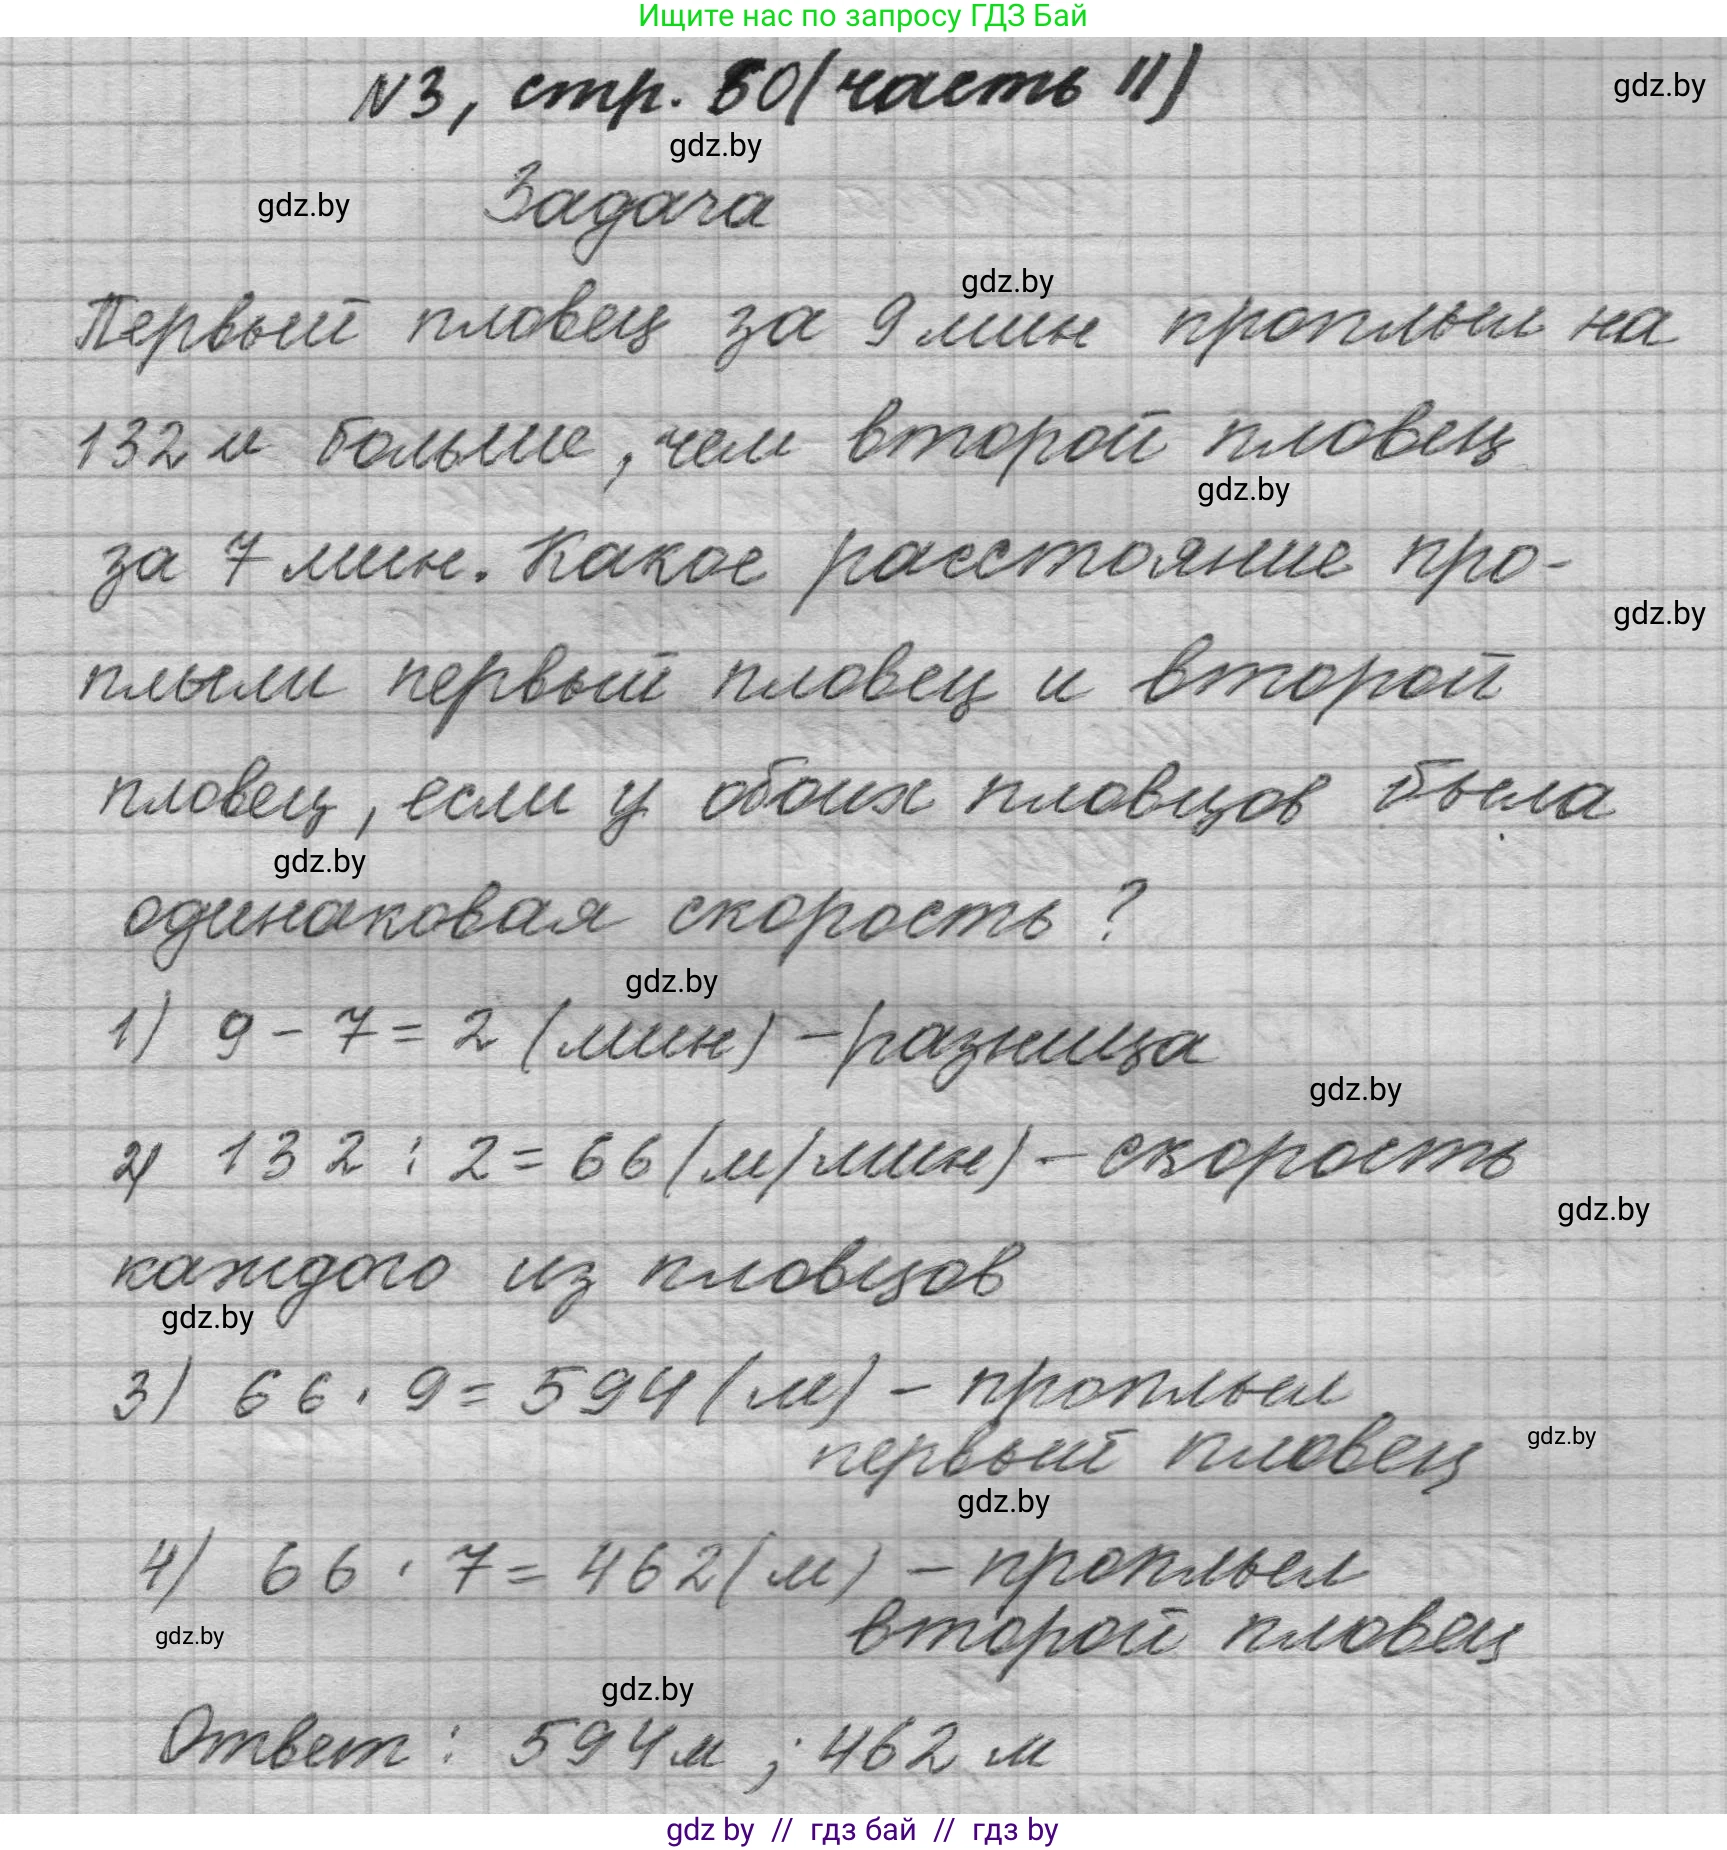 Ищите нас по запросу ГДЗ Бай
N3, стр. 50 (часть II)
gdz.by
gdz.by
gdz.by
Задача
gdz.by
Первый пловец за 9 мин проплыл на
132 м больше, чем второй пловец
gdz.by
за 7 мин. Какое расстояние про-
gdz.by
плыли первый пловец и второй
пловец, если у обоих пловцов была
gdz.by
одинаковая скорость?
gdz.by
1) 9 - 7 = 2 (мин) - разница
gdz.by
2) 132 : 2 = 66 (м/мин) - скорость
gdz.by
каждого из пловцов
gdz.by
3) 66 · 9 = 594 (м) - проплыл
первый пловец
gdz.by
gdz.by
4) 66 · 7 = 462 (м) - проплыл
второй пловец
gdz.by
gdz.by
Ответ: 594 м; 462 м
gdz by // гдз бай // гдз by